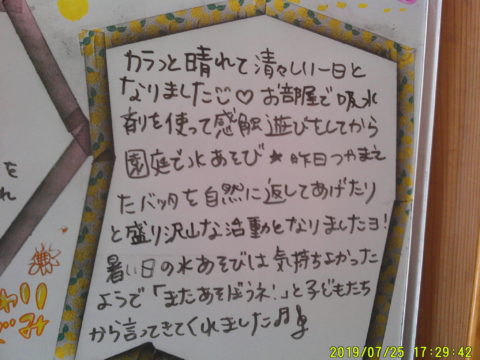 カラっと晴れて清々しい一日と
なりました♡ お部屋で吸水
剤を使って感触遊びをしてから
園庭で水あそび★昨日つかまえ
たバッタを自然に返してあげたり
と盛り沢山な活動となりましたヨ!
暑い日の水あそびは気持ちよかった
ようで「またあそぼうネ!」と子どもたち
から言ってきてくれました♪
を
れ
2019/07/25 17:29:42